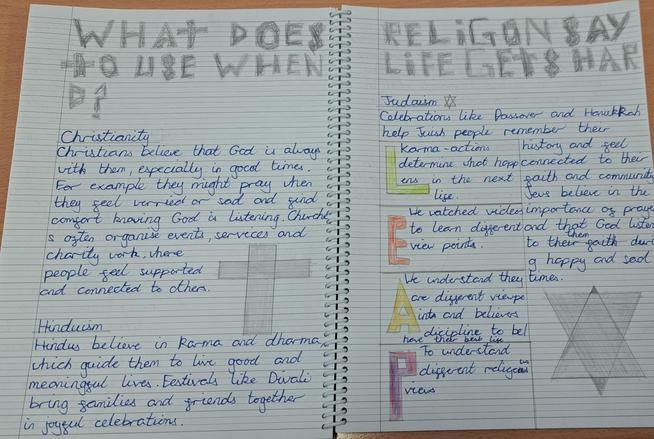 WHAT DOES RELIGON SAY
TO USE WHEN LIFE GETS HAR
D?
Christianity
Christians believe that God is always
with them, especially in good times.
For example they might pray when
they feel worried or sad and find
comfort knowing God is listening. Churche
s often organise events, services and
charity work, where
people feel supported
and connected to others.
Hinduism
Hindus believe in Karma and dharma,
which guide them to live good and
meaningful lives. Festivals like Divali
bring families and friends together
in joyful celebrations.
Judaism
Celebrations like Passover and Hanukkah
help Jewish people remember their
history and feel
connected to their
faith and community
Jews believe in the
importance of praye
and that God listen
to them their faith duri
g happy and sad
times.
L
Karma - actions
determine what happ
ens in the next
life.
E
We watched videos
to learn different
view points.
A
We understand they
are different viewpo
ints and believers
dicipline to bel
have their best life
P
To understand
different religious
views